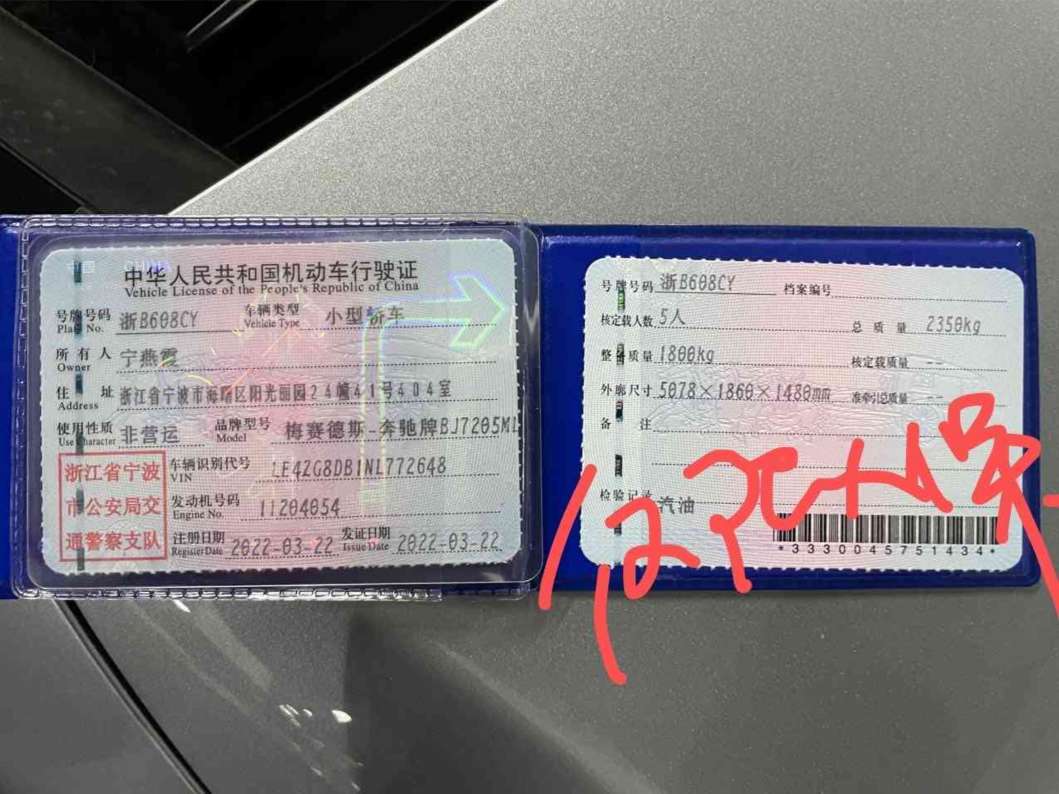 中华人民共和国机动车行驶证
Vehicle License of the People's Republic of China
号牌号码 浙B608CY 车辆类型 小型轿车
Plate No. Vehicle Type
所有人 宁燕霞
Owner
住址 浙江省宁波市海曙区阳光丽园24幢41号404室
Address
使用性质 非营运 品牌型号 梅赛德斯-奔驰牌BJ7205M
Use Character Model
浙江省宁波
市公安局交
通警察支队
车辆识别代号 LE42G8DB1NL772648
VIN
发动机号码 11204054
Engine No.
注册日期 2022-03-22 发证日期 2022-03-22
Register Date Issue Date
号牌号码 浙B608CY 档案编号
核定载人数 5人 总质量 2350kg
整备质量 1800kg 核定载质量 --
外廓尺寸 5078×1860×1480mm 准牵引总质量 --
备注
检验记录 汽油
*3330045751434*